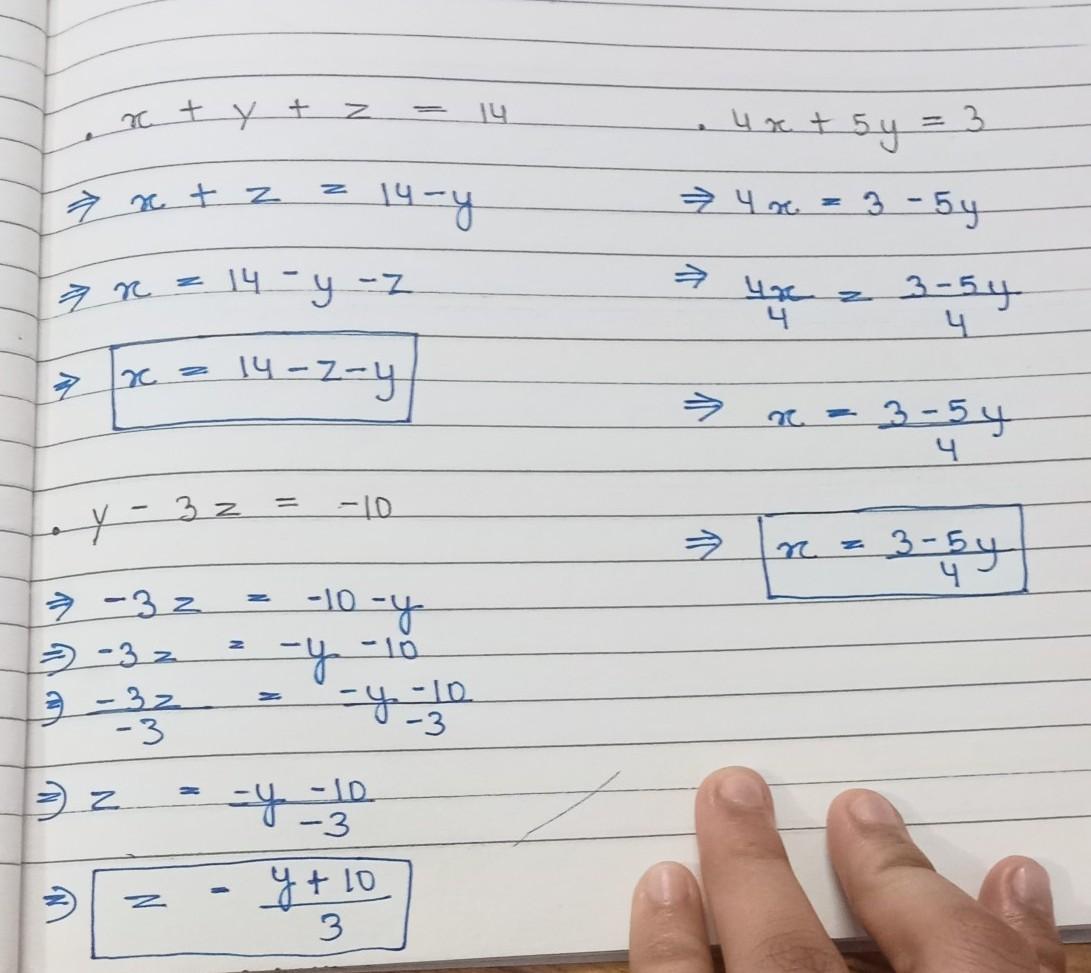 . x + y + z = 14
⇒ x + z = 14-y
⇒ x = 14 - y - z
⇒ x = 14 - z - y
. y - 3z = -10
⇒ -3z = -10 -y
⇒ -3z = -y -10
⇒ -3z/-3 = -y -10/-3
⇒ z = -y -10/-3
⇒ z - y + 10/3
. 4x + 5y = 3
⇒ 4x = 3 - 5y
⇒ 4x/4 = 3-5y/4
⇒ x = 3-5y/4
⇒ x = 3-5y/4